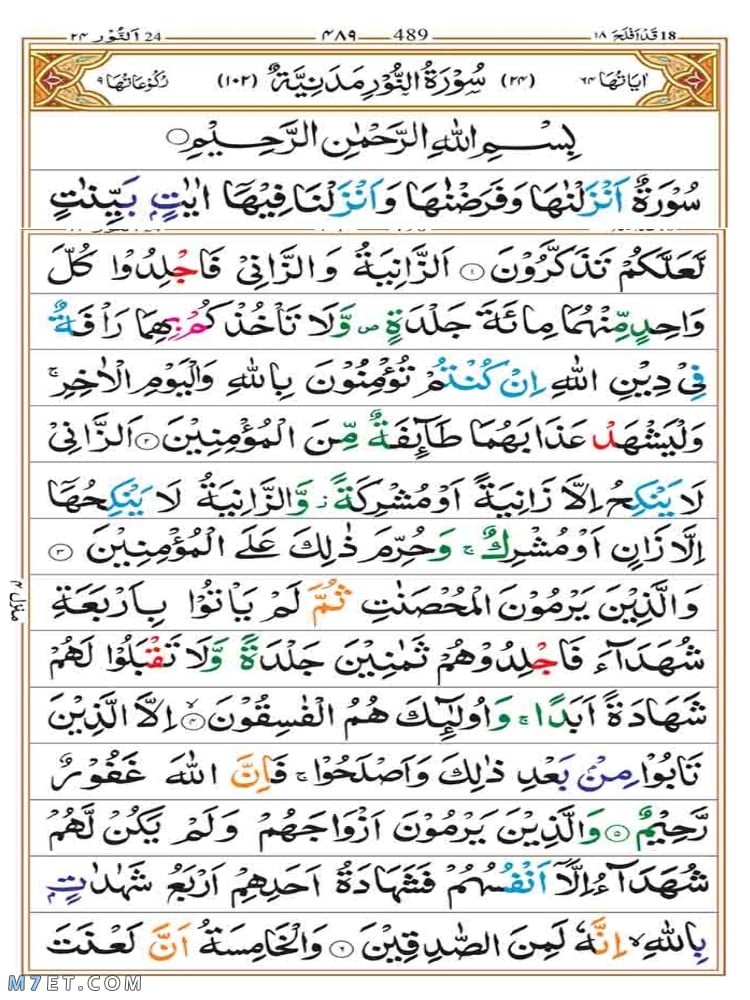 24 اَلنُّوْر ٢٤ ٤٨٩ 489 18 قَدْ اَفْلَحَ ١٨
اٰيَاتُهَا ٦٤ (٢٤) سُوْرَةُ النُّوْرِ مَدَنِيَّةٌ (١٠٢) رُكُوْعَاتُهَا ٩
بِسْمِ اللّٰهِ الرَّحْمٰنِ الرَّحِيْمِ
سُوْرَةٌ اَنْزَلْنٰهَا وَفَرَضْنٰهَا وَاَنْزَلْنَا فِيْهَاۤ اٰيٰتٍۭ بَيِّنٰتٍ
لَّعَلَّكُمْ تَذَكَّرُوْنَ ١ اَلزَّانِيَةُ وَالزَّانِيْ فَاجْلِدُوْا كُلَّ
وَاحِدٍ مِّنْهُمَا مِائَةَ جَلْدَةٍ ۖ وَّلَا تَاْخُذْكُمْ بِهِمَا رَاْفَةٌ
فِيْ دِيْنِ اللّٰهِ اِنْ كُنْتُمْ تُؤْمِنُوْنَ بِاللّٰهِ وَالْيَوْمِ الْاٰخِرِ ۚ
وَلْيَشْهَدْ عَذَابَهُمَا طَآئِفَةٌ مِّنَ الْمُؤْمِنِيْنَ ٢ اَلزَّانِيْ
لَا يَنْكِحُ اِلَّا زَانِيَةً اَوْ مُشْرِكَةً ز وَّالزَّانِيَةُ لَا يَنْكِحُهَاۤ
اِلَّا زَانٍ اَوْ مُشْرِكٌ ۚ وَحُرِّمَ ذٰلِكَ عَلَى الْمُؤْمِنِيْنَ ٣
وَالَّذِيْنَ يَرْمُوْنَ الْمُحْصَنٰتِ ثُمَّ لَمْ يَاْتُوْا بِاَرْبَعَةِ
شُهَدَآءَ فَاجْلِدُوْهُمْ ثَمٰنِيْنَ جَلْدَةً وَّلَا تَقْبَلُوْا لَهُمْ
شَهَادَةً اَبَدًا ۚ وَاُولٰٓئِكَ هُمُ الْفٰسِقُوْنَ ٤ اِلَّا الَّذِيْنَ
تَابُوْا مِنْۢ بَعْدِ ذٰلِكَ وَاَصْلَحُوْا ۚ فَاِنَّ اللّٰهَ غَفُوْرٌ
رَّحِيْمٌ ٥ وَالَّذِيْنَ يَرْمُوْنَ اَزْوَاجَهُمْ وَلَمْ يَكُنْ لَّهُمْ
شُهَدَآءُ اِلَّاۤ اَنْفُسُهُمْ فَشَهَادَةُ اَحَدِهِمْ اَرْبَعُ شَهٰدٰتٍۭ
بِاللّٰهِ ۙ اِنَّهٗ لَمِنَ الصّٰدِقِيْنَ ٦ وَالْخَامِسَةُ اَنَّ لَعْنَتَ
منزل ٤
M7ET.COM